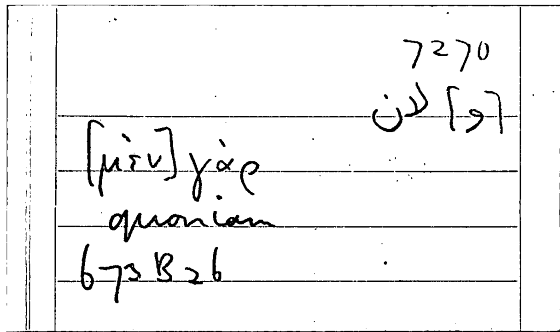 7270
[و] لان
[μὲν] γὰρ
quoniam
673 B 26